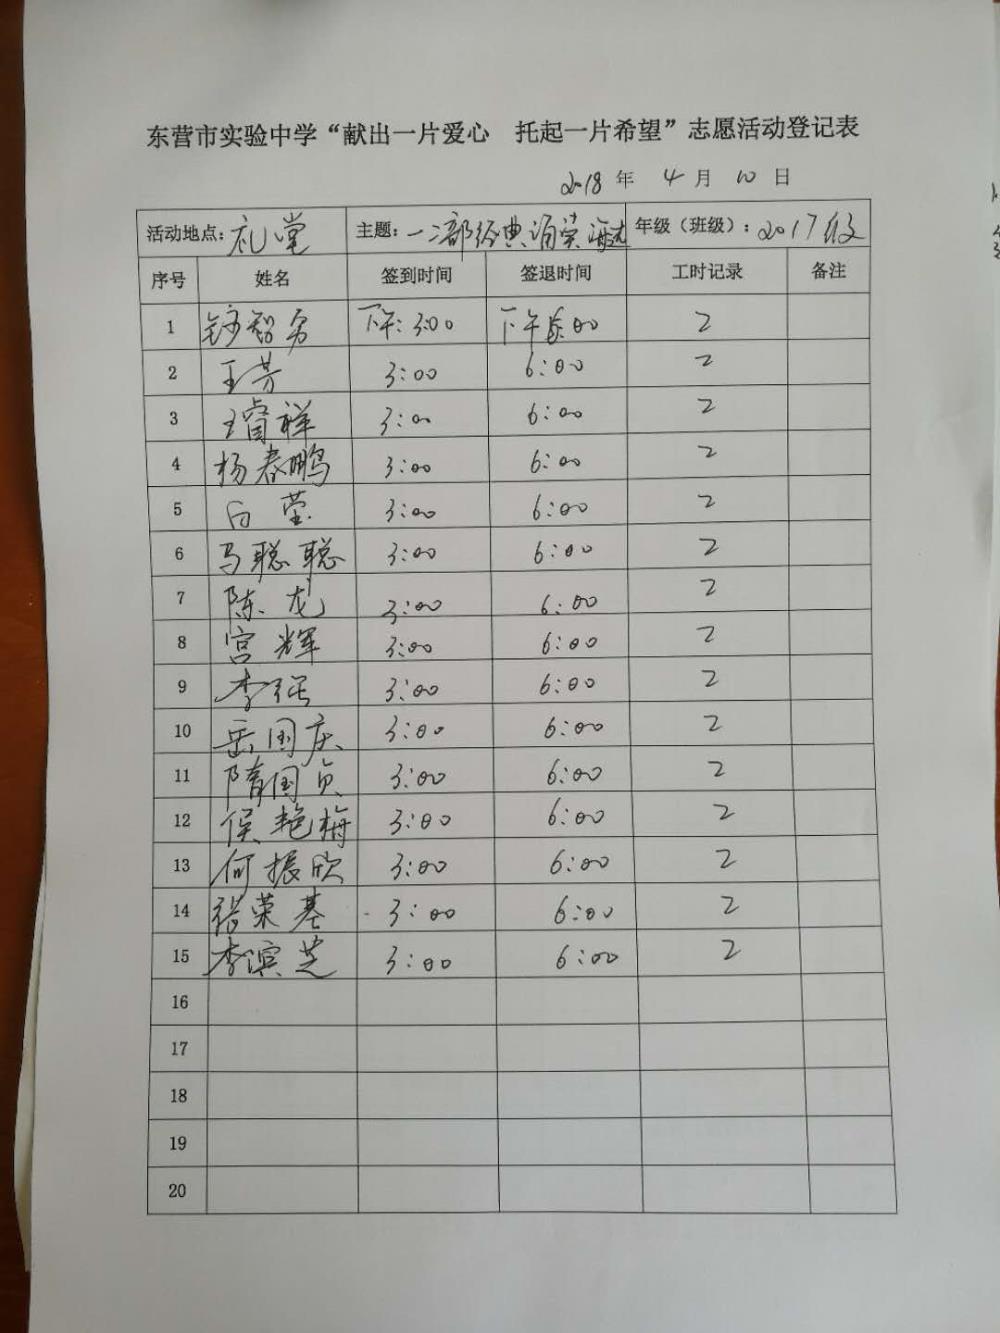 东营市实验中学“献出一片爱心 托起一片希望”志愿活动登记表
2018 年 4 月 10 日
活动地点: 礼堂 主题: 一二部经典诵读 年级（班级）: 2017级
序号 姓名 签到时间 签退时间 工时记录 备注
1 智勇 下午: 3:00 下午6:00 2
2 王芳 3:00 6:00 2
3 王睿祥 3:00 6:00 2
4 杨春鹏 3:00 6:00 2
5 白莹 3:00 6:00 2
6 马聪聪 3:00 6:00 2
7 陈龙 3:00 6:00 2
8 宫辉 3:00 6:00 2
9 李强 3:00 6:00 2
10 岳国庆 3:00 6:00 2
11 隋国贞 3:00 6:00 2
12 侯艳梅 3:00 6:00 2
13 何振欣 3:00 6:00 2
14 张荣基 3:00 6:00 2
15 李滨芝 3:00 6:00 2
16
17
18
19
20